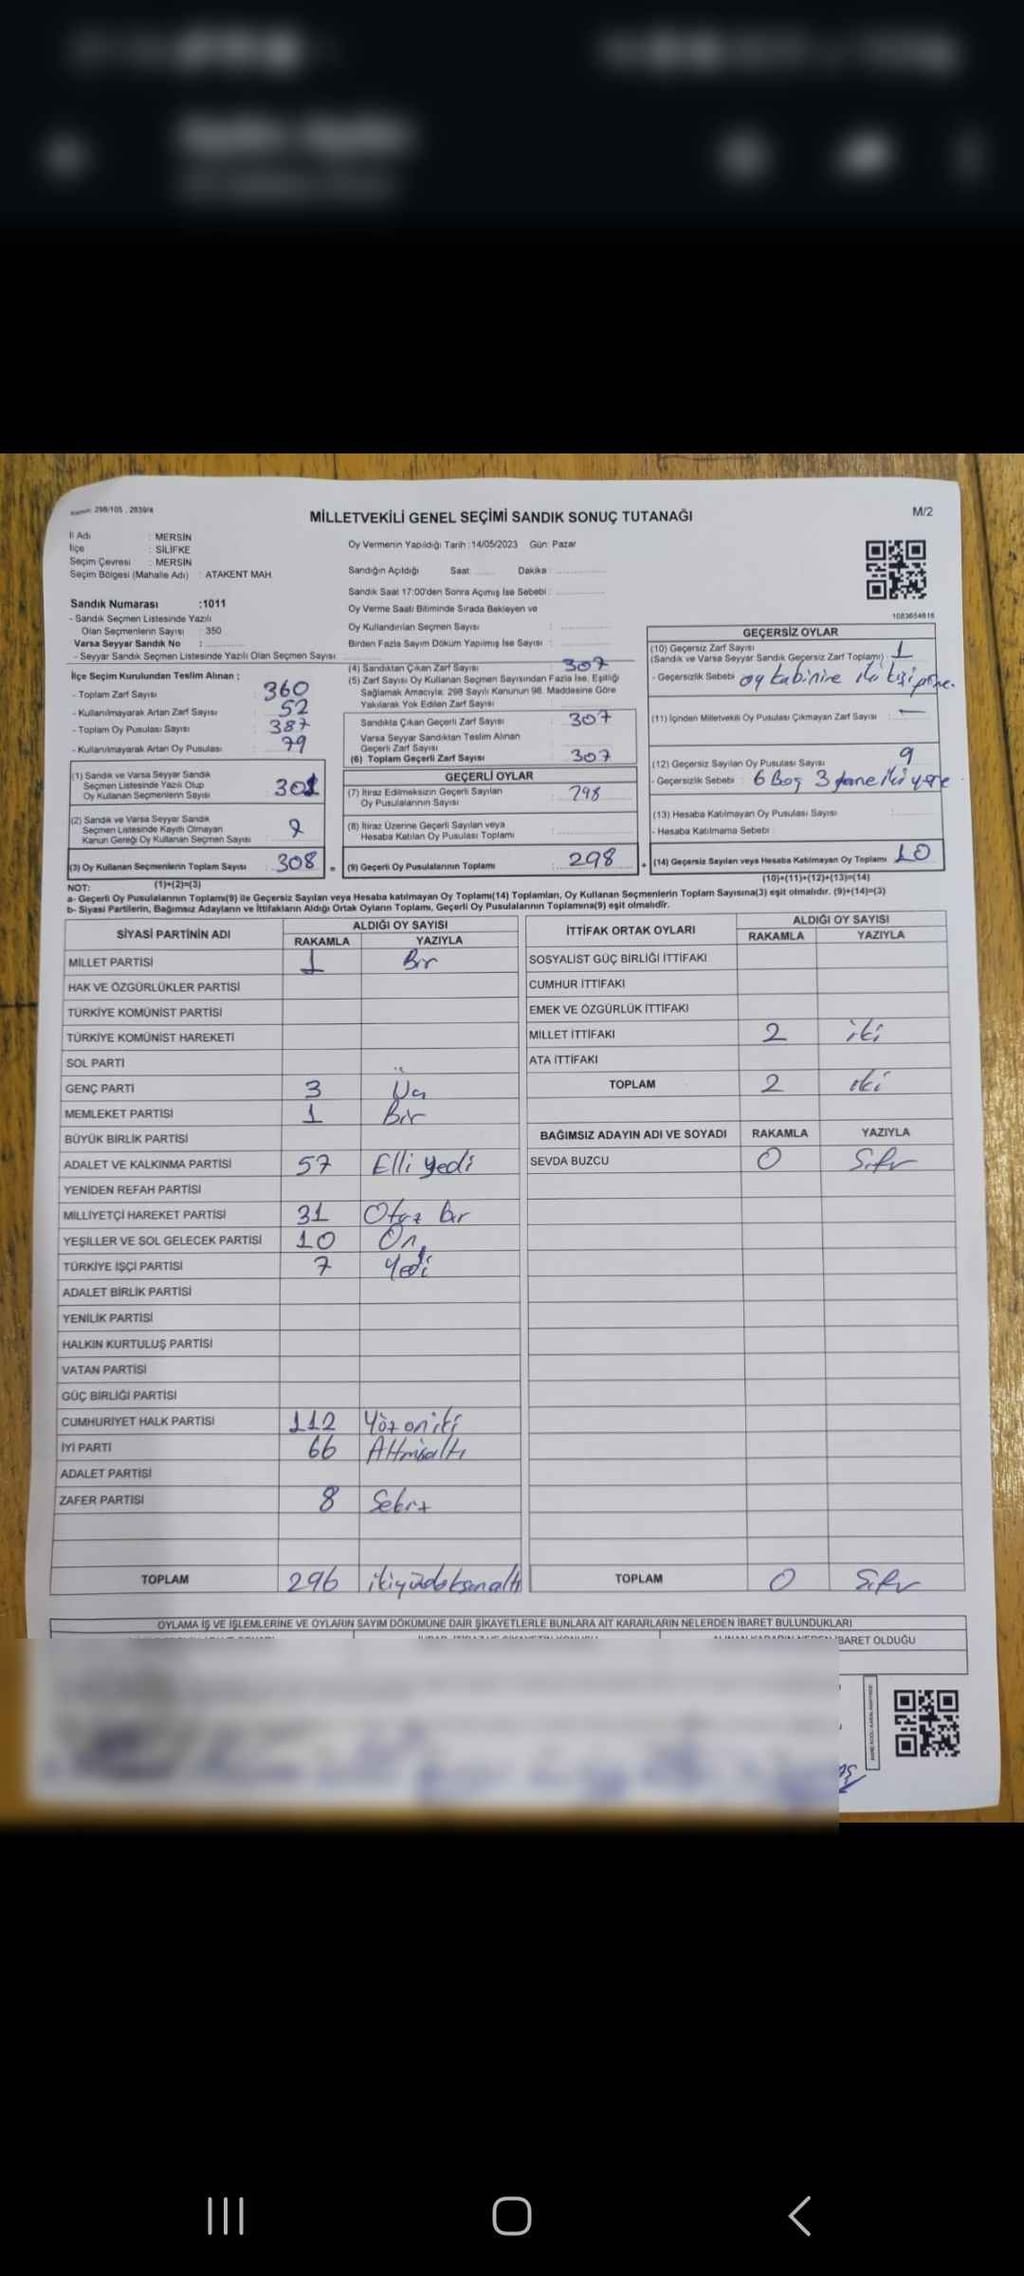 Kanun: 298/105 , 2839/4
MİLLETVEKİLİ GENEL SEÇİMİ SANDIK SONUÇ TUTANAĞI
M/2
İl Adı : MERSİN
İlçe : SİLİFKE
Seçim Çevresi : MERSİN
Seçim Bölgesi (Mahalle Adı) : ATAKENT MAH.
Sandık Numarası :1011
- Sandık Seçmen Listesinde Yazılı
Olan Seçmenlerin Sayısı : 350
Varsa Seyyar Sandık No :
- Seyyar Sandık Seçmen Listesinde Yazılı Olan Seçmen Sayısı
İlçe Seçim Kurulundan Teslim Alınan ;
- Toplam Zarf Sayısı 360
- Kullanılmayarak Artan Zarf Sayısı 52
- Toplam Oy Pusulası Sayısı 387
- Kullanılmayarak Artan Oy Pusulası 79
(1) Sandık ve Varsa Seyyar Sandık
Seçmen Listesinde Yazılı Olup
Oy Kullanan Seçmenlerin Sayısı 301
(2) Sandık ve Varsa Seyyar Sandık
Seçmen Listesinde Kayıtlı Olmayan
Kanun Gereği Oy Kullanan Seçmen Sayısı
(3) Oy Kullanan Seçmenlerin Toplam Sayısı 308 =
(1)+(2)=(3)
Oy Vermenin Yapıldığı Tarih :14/05/2023 Gün: Pazar
Sandığın Açıldığı Saat Dakika
Sandık Saat 17:00'den Sonra Açımış İse Sebebi :
Oy Verme Saati Bitiminde Sırada Bekleyen ve
Oy Kullandırılan Seçmen Sayısı :
Birden Fazla Sayım Döküm Yapılmış İse Sayısı :
(4) Sandıktan Çıkan Zarf Sayısı 307
(5) Zarf Sayısı Oy Kullanan Seçmen Sayısından Fazla İse, Eşitliği
Sağlamak Amacıyla; 298 Sayılı Kanunun 98. Maddesine Göre
Yakılarak Yok Edilen Zarf Sayısı
Sandıkta Çıkan Geçerli Zarf Sayısı : 307
Varsa Seyyar Sandıktan Teslim Alınan
Geçerli Zarf Sayısı
(6) Toplam Geçerli Zarf Sayısı : 307
GEÇERLİ OYLAR
(7) İtiraz Edilmeksizin Geçerli Sayılan
Oy Pusulalarının Sayısı : 298
(8) İtiraz Üzerine Geçerli Sayılan veya
Hesaba Katılan Oy Pusulası Toplamı
(9) Geçerli Oy Pusulalarının Toplamı : 298 +
1083654616
GEÇERSİZ OYLAR
(10) Geçersiz Zarf Sayısı
(Sandık ve Varsa Seyyar Sandık Geçersiz Zarf Toplamı) 1
- Geçersizlik Sebebi oy kabinine iki kişi
(11) İçinden Milletvekili Oy Pusulası Çıkmayan Zarf Sayısı : —
(12) Geçersiz Sayılan Oy Pusulası Sayısı 9
- Geçersizlik Sebebi : 6 Boş 3 tane iki yere
(13) Hesaba Katılmayan Oy Pusulası Sayısı :
- Hesaba Katılmama Sebebi
(14) Geçersiz Sayılan veya Hesaba Katılmayan Oy Toplamı 10
(10)+(11)+(12)+(13)=(14)
NOT:
a- Geçerli Oy Pusulalarının Toplamı(9) ile Geçersiz Sayılan veya Hesaba katılmayan Oy Toplamı(14) Toplamları, Oy Kullanan Seçmenlerin Toplam Sayısına(3) eşit olmalıdır. (9)+(14)=(3)
b- Siyasi Partilerin, Bağımsız Adayların ve İttifakların Aldığı Ortak Oyların Toplamı, Geçerli Oy Pusulalarının Toplamına(9) eşit olmalıdır.
SİYASİ PARTİNİN ADI ALDIĞI OY SAYISI
RAKAMLA YAZIYLA
MİLLET PARTİSİ 1 Bir
HAK VE ÖZGÜRLÜKLER PARTİSİ
TÜRKİYE KOMÜNİST PARTİSİ
TÜRKİYE KOMÜNİST HAREKETİ
SOL PARTİ
GENÇ PARTİ 3 Üç
MEMLEKET PARTİSİ 1 Bir
BÜYÜK BİRLİK PARTİSİ
ADALET VE KALKINMA PARTİSİ 57 Elli yedi
YENİDEN REFAH PARTİSİ
MİLLİYETÇİ HAREKET PARTİSİ 31 Otuz bir
YEŞİLLER VE SOL GELECEK PARTİSİ 10 On
TÜRKİYE İŞÇİ PARTİSİ 7 Yedi
ADALET BİRLİK PARTİSİ
YENİLİK PARTİSİ
HALKIN KURTULUŞ PARTİSİ
VATAN PARTİSİ
GÜÇ BİRLİĞİ PARTİSİ
CUMHURİYET HALK PARTİSİ 112 Yüz on iki
İYİ PARTİ 66 Altmışaltı
ADALET PARTİSİ
ZAFER PARTİSİ 8 Sekiz
TOPLAM 296 ikiyüzdoksanaltı
İTTİFAK ORTAK OYLARI ALDIĞI OY SAYISI
RAKAMLA YAZIYLA
SOSYALİST GÜÇ BİRLİĞİ İTTİFAKI
CUMHUR İTTİFAKI
EMEK VE ÖZGÜRLÜK İTTİFAKI
MİLLET İTTİFAKI 2 iki
ATA İTTİFAKI
TOPLAM 2 iki
BAĞIMSIZ ADAYIN ADI VE SOYADI RAKAMLA YAZIYLA
SEVDA BUZCU 0 Sıfır
TOPLAM 0 Sıfır
OYLAMA İŞ VE İŞLEMLERİNE VE OYLARIN SAYIM DÖKÜMÜNE DAİR ŞİKAYETLERLE BUNLARA AİT KARARLARIN NELERDEN İBARET BULUNDUKLARI
İBARET OLDUĞU